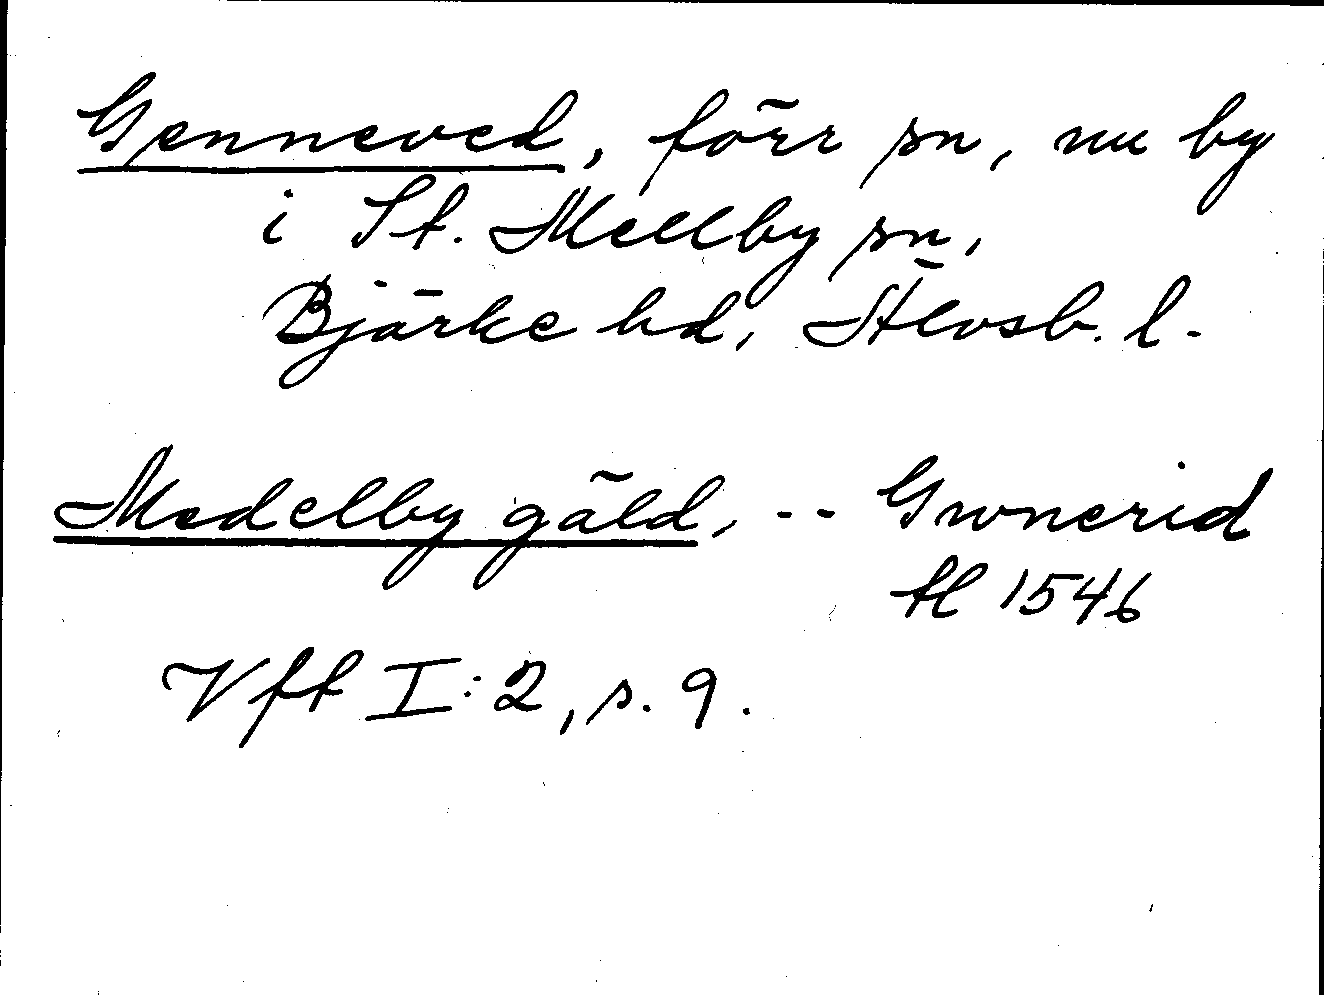 Genneved, förr sn, nu by
i St. Mellby sn,
Bjärke hd, Älvsb. l.
Medelby gäld, -- Gwnerid
Hl 1546
Vff I:2, s. 9.